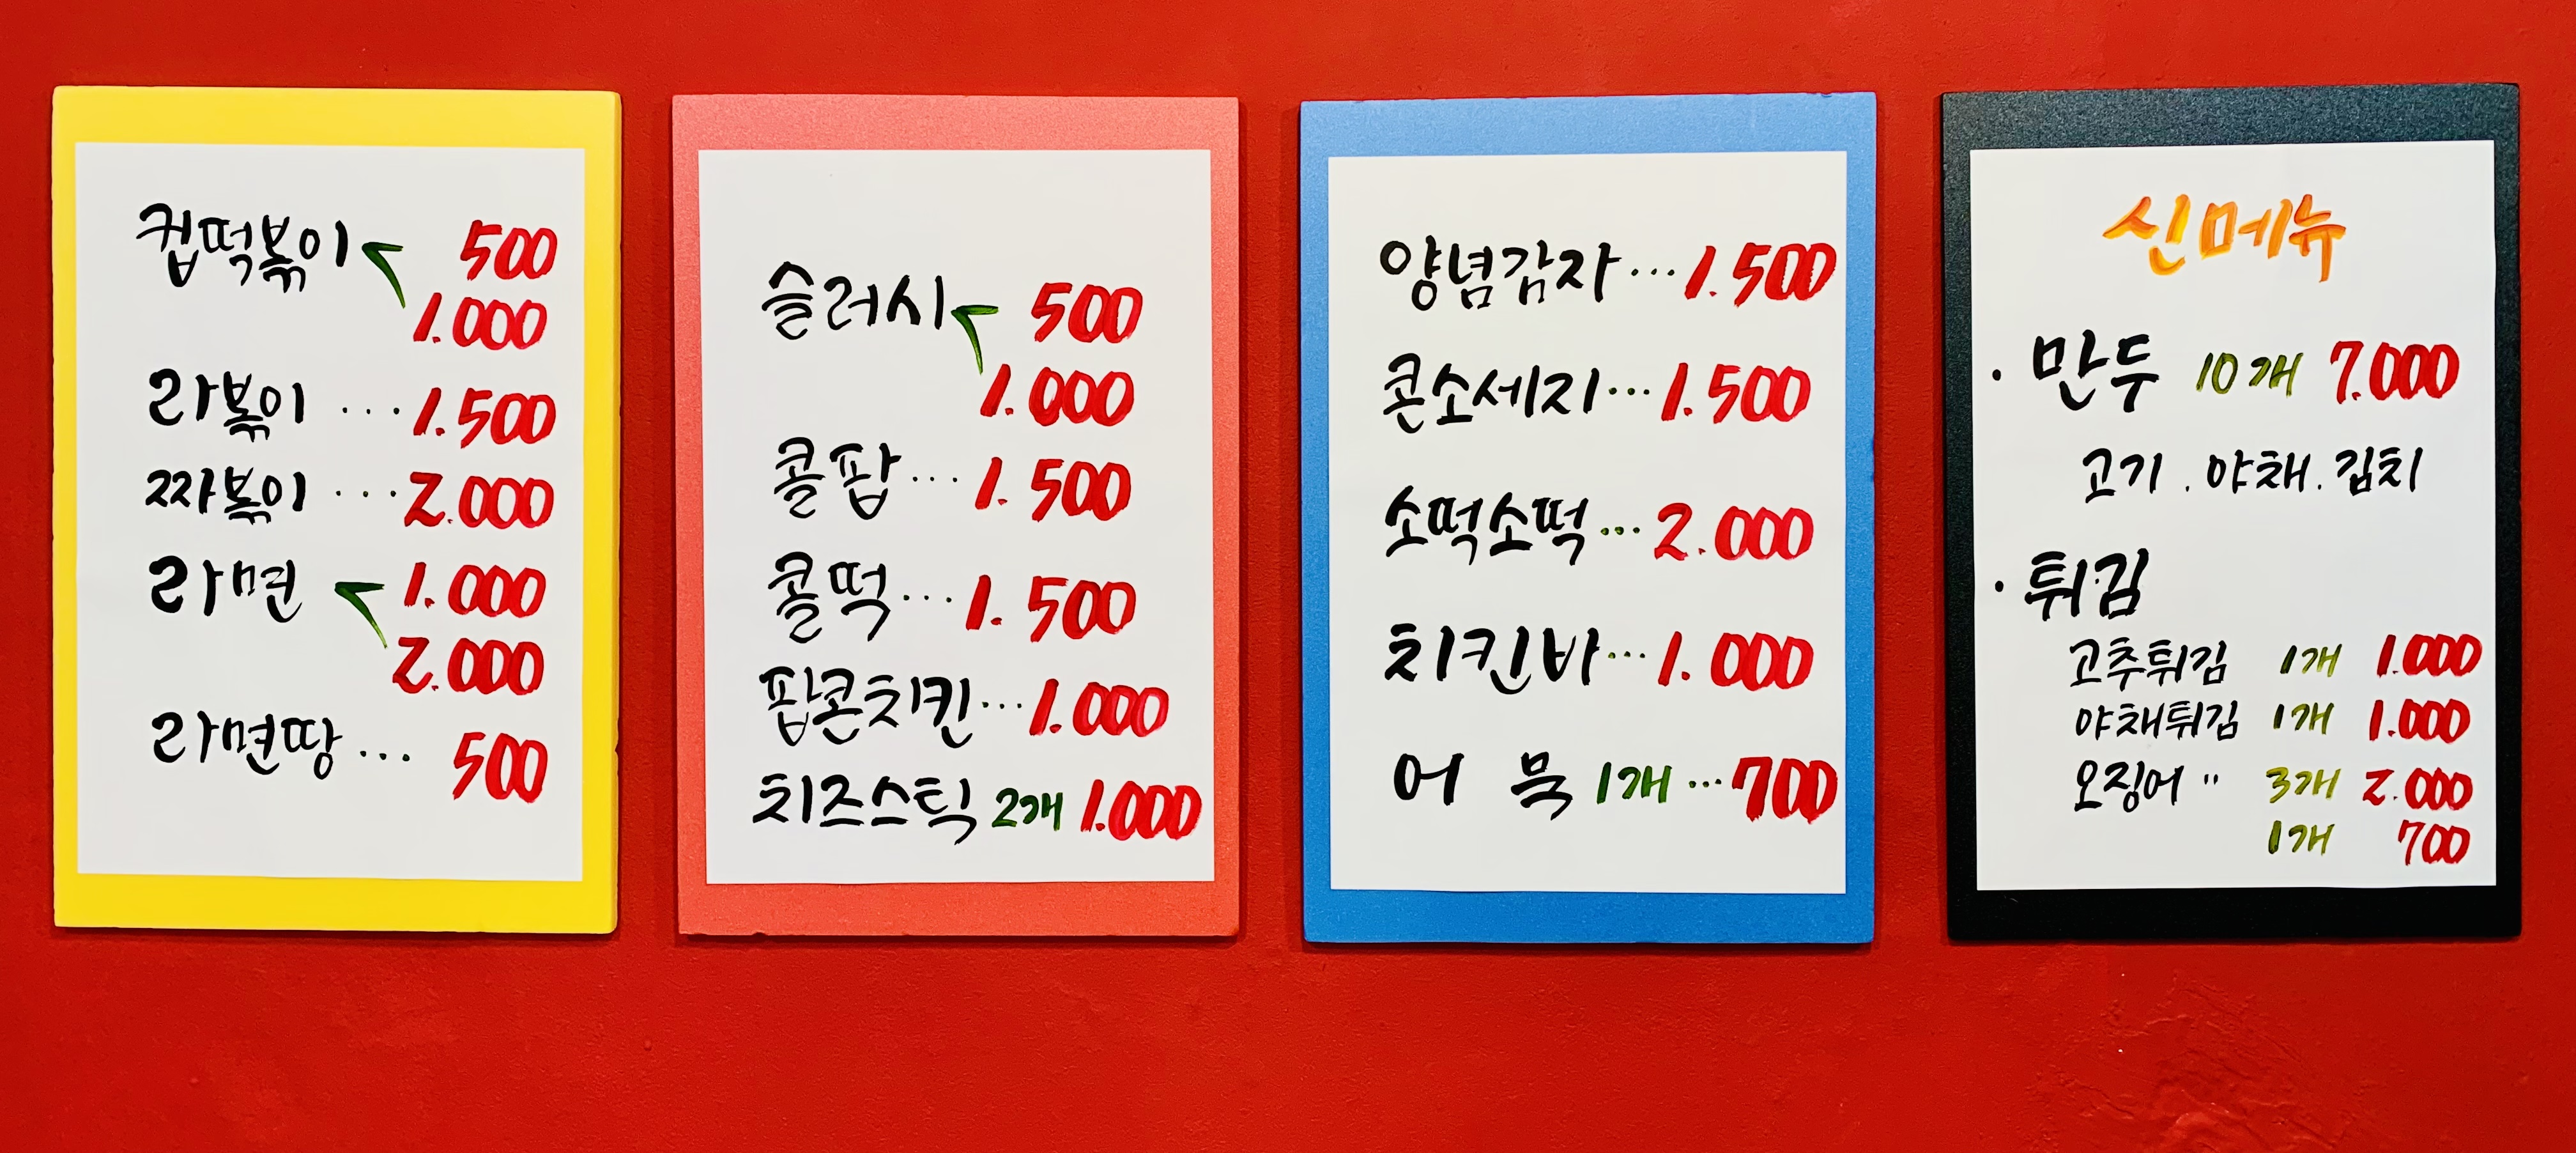 컵떡볶이 500
1.000
라볶이 ... 1.500
짜볶이 ... 2.000
라면 1.000
2.000
라면땅 ... 500
슬러시 500
1.000
콜팝 ... 1.500
콜떡 ... 1.500
팝콘치킨 ... 1.000
치즈스틱 2개 1.000
양념감자 ... 1.500
콘소세지 ... 1.500
소떡소떡 ... 2.000
치킨바 ... 1.000
어묵 1개 ... 700
신메뉴
· 만두 10개 7.000
고기 . 야채 . 김치
· 튀김
고추튀김 1개 1.000
야채튀김 1개 1.000
오징어 " 3개 2.000
1개 700